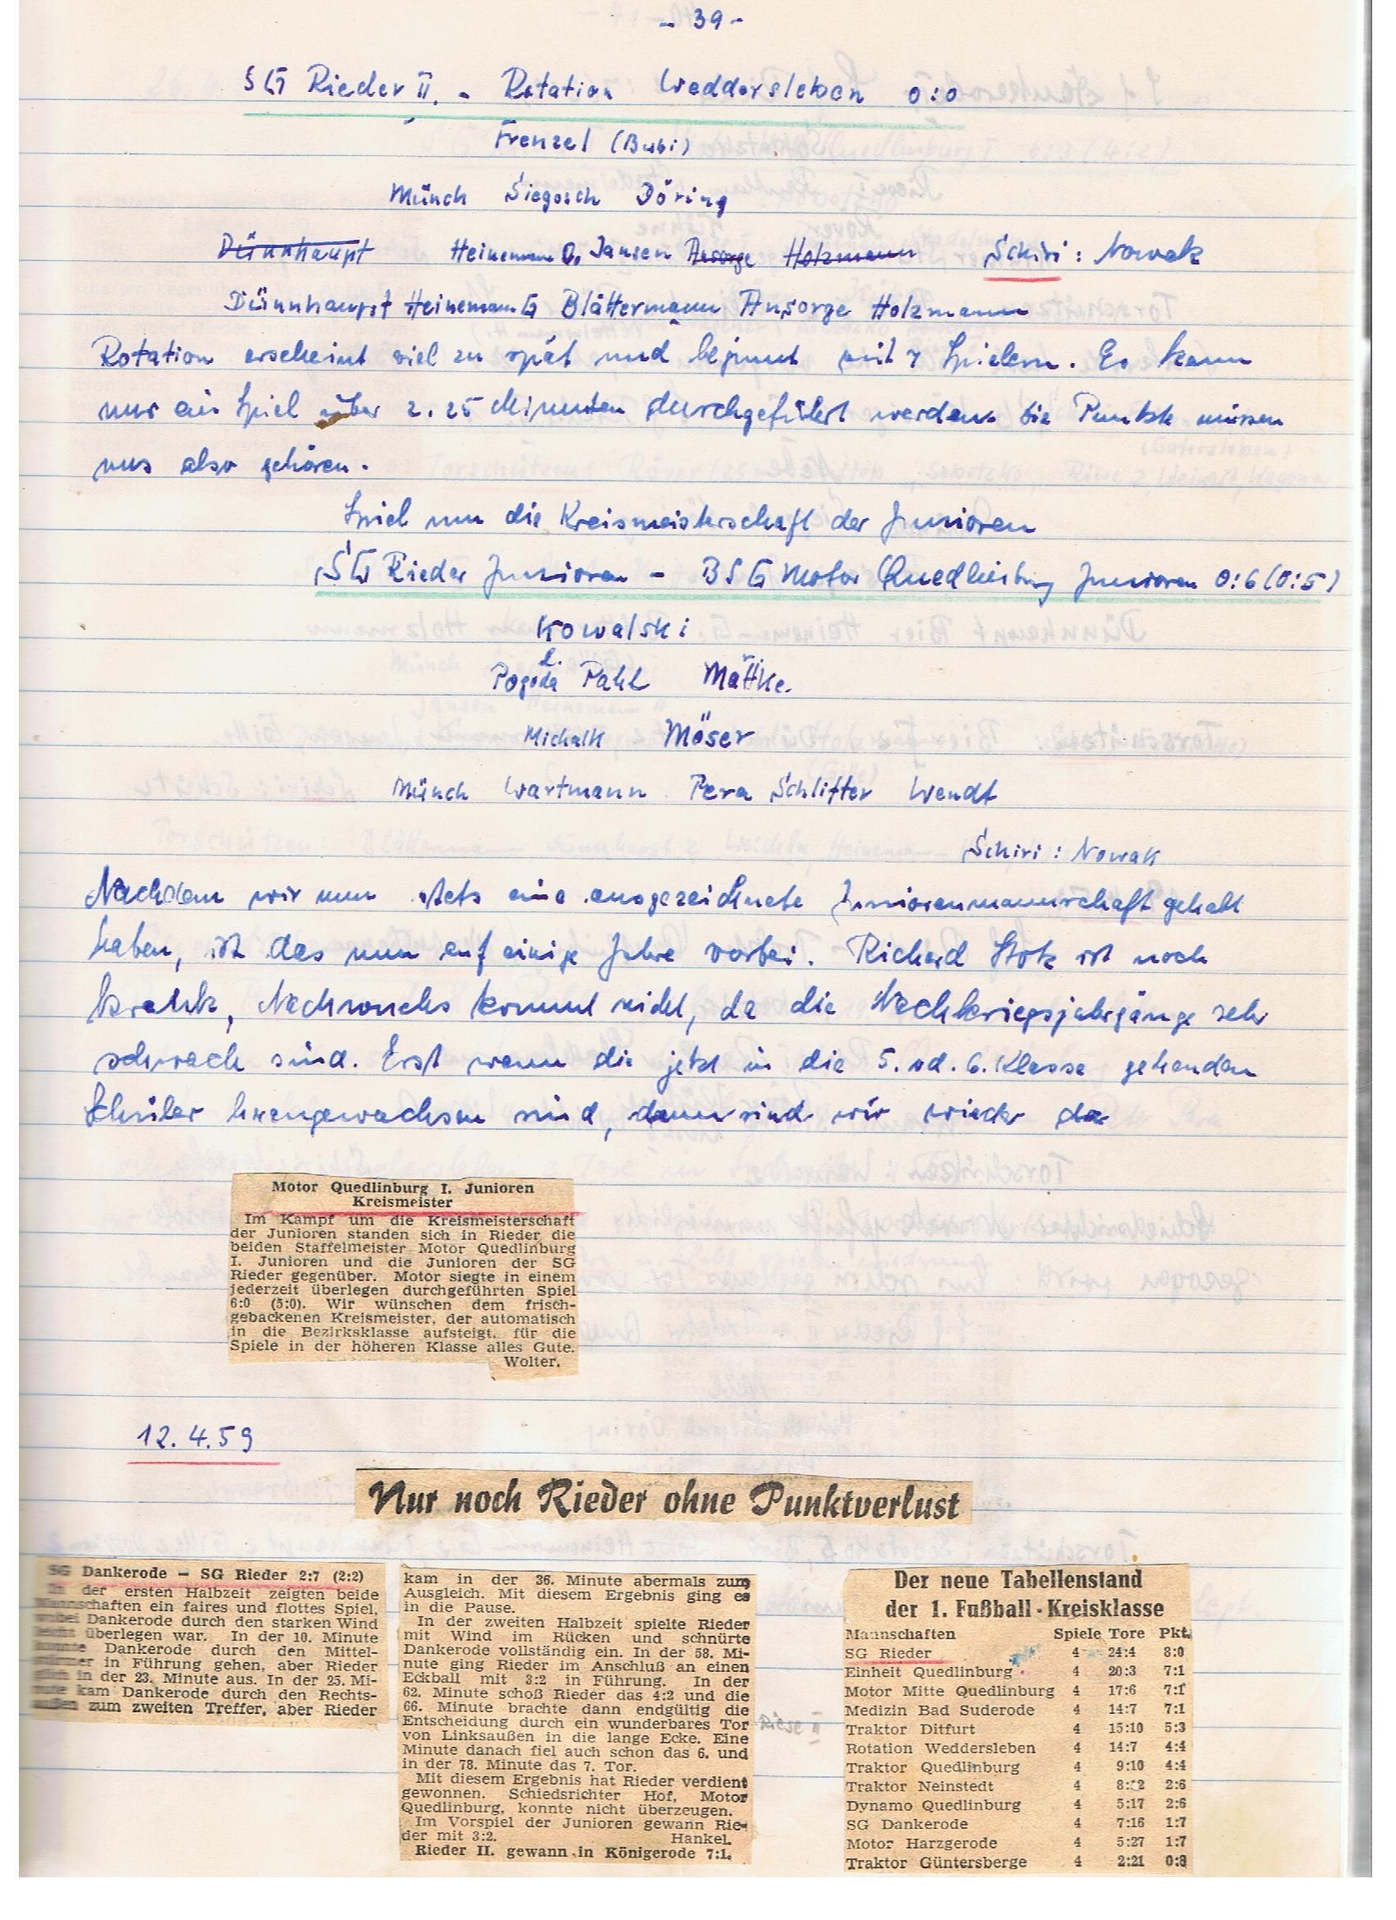 - 39 -
SG Rieder II. - Rotation Weddersleben 0:0
Frenzel (Bubi)
Münch Siegosch Döring
Dünnhaupt Heinemann G. Jansen Ansorge Holzmann Schiri: Nowak
Dünnhaupt Heinemann G Blättermann Ansorge Holzmann
Rotation erscheint viel zu spät und beginnt mit 7 Spielern. Es kann
nur ein Spiel über 2. 25 Minuten durchgeführt werden. Die Punkte müssen
uns also gehören.
Spiel um die Kreismeisterschaft der Junioren
SG Rieder Junioren - BSG Motor Quedlinburg Junioren 0:6 (0:5)
Kowalski
Pogoda Pahl Mattke.
Michalk Möser
Münch Wartmann Pera Schlifter Wendt
Schiri: Nowak
Nachdem wir nun stets eine ausgezeichnete Juniorenmannschaft gehabt
haben, ist das nun auf einige Jahre vorbei. Richard Stok ist noch
krank, Nachwuchs kommt nicht, da die Nachkriegsjahrgänge sehr
schwach sind. Erst wenn die jetzt in die 5. od. 6. Klasse gehenden
Schüler herangewachsen sind, dann sind wir wieder da
Motor Quedlinburg I. Junioren
Kreismeister
Im Kampf um die Kreismeisterschaft
der Junioren standen sich in Rieder die
beiden Staffelmeister Motor Quedlinburg
I. Junioren und die Junioren der SG
Rieder gegenüber. Motor siegte in einem
jederzeit überlegen durchgeführten Spiel
6:0 (5:0). Wir wünschen dem frisch-
gebackenen Kreismeister, der automatisch
in die Bezirksklasse aufsteigt, für die
Spiele in der höheren Klasse alles Gute.
Wolter.
12.4.59
Nur noch Rieder ohne Punktverlust
SG Dankerode - SG Rieder 2:7 (2:2)
In der ersten Halbzeit zeigten beide
Mannschaften ein faires und flottes Spiel,
wobei Dankerode durch den starken Wind
leicht überlegen war. In der 10. Minute
konnte Dankerode durch den Mittel-
stürmer in Führung gehen, aber Rieder
glich in der 23. Minute aus. In der 25. Mi-
nute kam Dankerode durch den Rechts-
außen zum zweiten Treffer, aber Rieder
kam in der 36. Minute abermals zum
Ausgleich. Mit diesem Ergebnis ging es
in die Pause.
In der zweiten Halbzeit spielte Rieder
mit Wind im Rücken und schnürte
Dankerode vollständig ein. In der 58. Mi-
nute ging Rieder im Anschluß an einen
Eckball mit 3:2 in Führung. In der
62. Minute schoß Rieder das 4:2 und die
66. Minute brachte dann endgültig die
Entscheidung durch ein wunderbares Tor
von Linksaußen in die lange Ecke. Eine
Minute danach fiel auch schon das 6. und
in der 78. Minute das 7. Tor.
Mit diesem Ergebnis hat Rieder verdient
gewonnen. Schiedsrichter Hof, Motor
Quedlinburg, konnte nicht überzeugen.
Im Vorspiel der Junioren gewann Rie-
der mit 3:2. Hankel.
Rieder II. gewann in Königerode 7:1.
Der neue Tabellenstand
der 1. Fußball-Kreisklasse
Mannschaften Spiele Tore Pkt.
SG Rieder 4 24:4 8:0
Einheit Quedlinburg 4 20:3 7:1
Motor Mitte Quedlinburg 4 17:6 7:1
Medizin Bad Suderode 4 14:7 7:1
Traktor Ditfurt 4 15:10 5:3
Rotation Weddersleben 4 14:7 4:4
Traktor Quedlinburg 4 9:10 4:4
Traktor Neinstedt 4 2:6
Dynamo Quedlinburg 4 5:17 2:6
SG Dankerode 4 7:16 1:7
Motor Harzgerode 4 5:27 1:7
Traktor Güntersberge 4 2:21 0:8